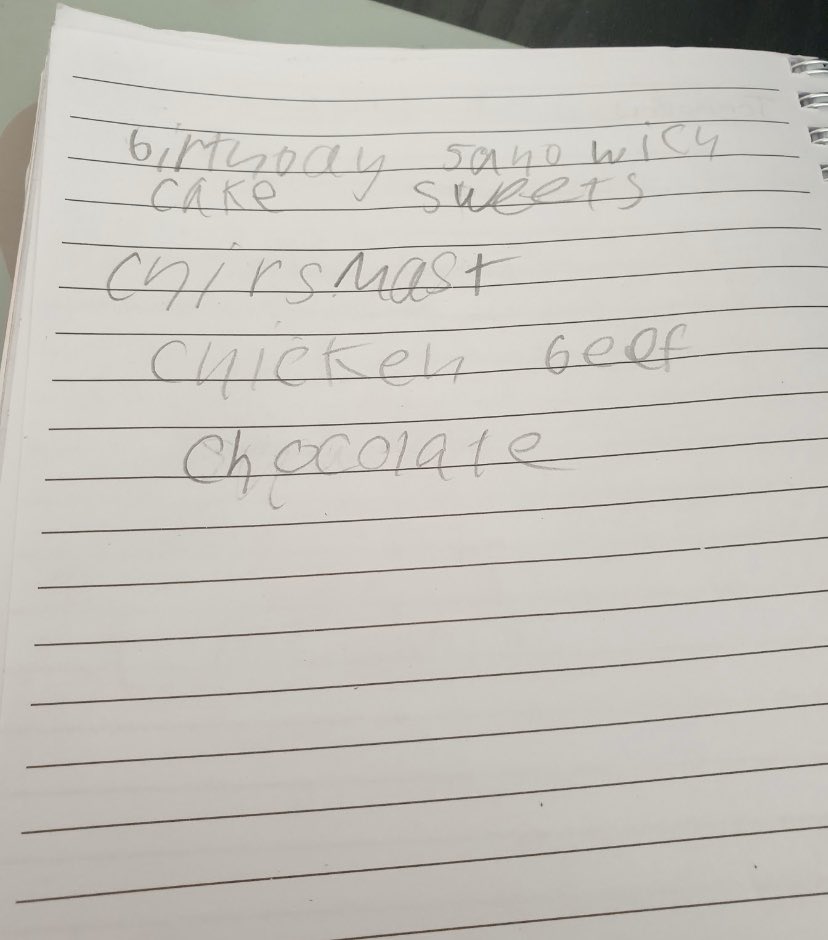 birthday sandwich
cake sweets
chirsmast
chicken beef
chocolate